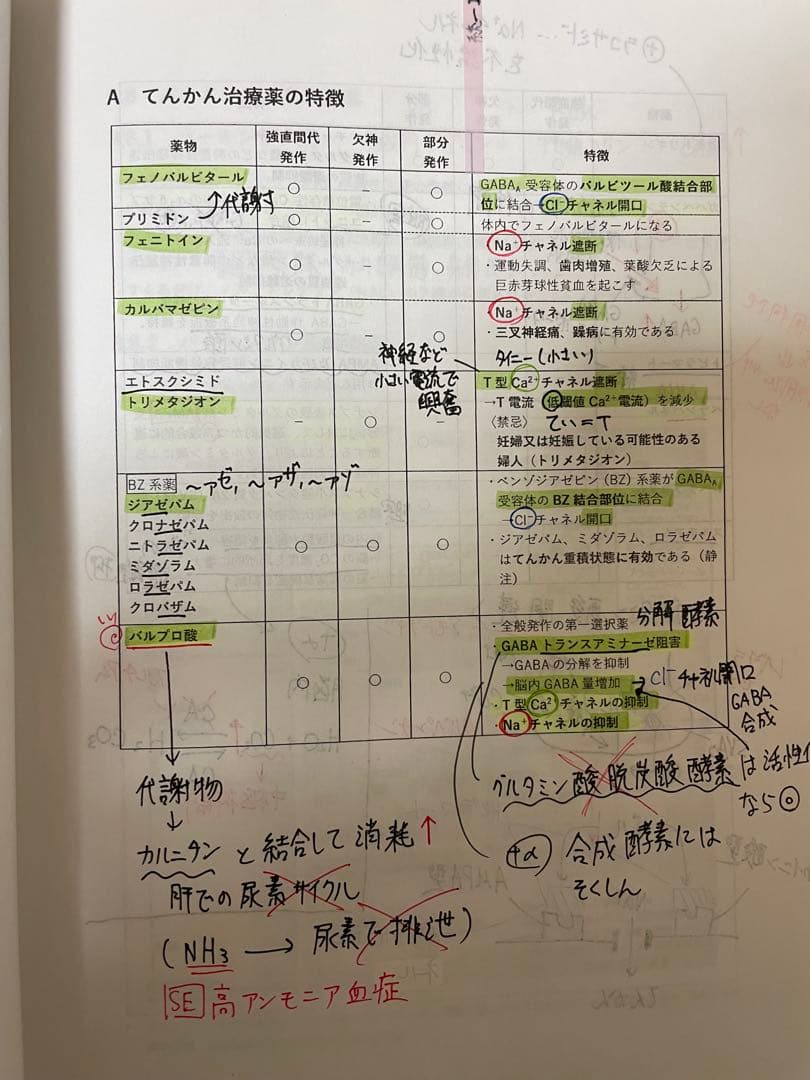 A　てんかん治療薬の特徴
薬物 強直間代発作 欠神発作 部分発作 特徴
フェノバルビタール ○ − ○ GABAA 受容体のバルビツール酸結合部
位に結合→Cl⁻チャネル開口
代謝
プリミドン ○ − ○ 体内でフェノバルビタールになる
フェニトイン ○ − ○ Na⁺チャネル遮断
・運動失調、歯肉増殖、葉酸欠乏による
巨赤芽球性貧血を起こす
カルバマゼピン ○ − ○ Na⁺チャネル遮断
・三叉神経痛、躁病に有効である
神経など
小さい電流で
興奮
タイニー(小さい)
エトスクシミド
トリメタジオン
− ○ −
T 型 Ca²⁺チャネル遮断
→T 電流（低閾値 Ca²⁺電流）を減少
〈禁忌〉 てい=T
妊婦又は妊娠している可能性のある
婦人（トリメタジオン）
BZ 系薬 〜アゼ, 〜アザ, 〜アゾ
ジアゼパム
クロナゼパム
ニトラゼパム
ミダゾラム
ロラゼパム
クロバザム
○ ○ ○
・ベンゾジアゼピン（BZ）系薬が GABAA
受容体の BZ 結合部位に結合
→Cl⁻チャネル開口
・ジアゼパム、ミダゾラム、ロラゼパム
はてんかん重積状態に有効である（静
注）
バルプロ酸 ○ ○ ○
・全般発作の第一選択薬 分解酵素
・GABA トランスアミナーゼ阻害
→GABA の分解を抑制
→脳内 GABA 量増加 → Cl⁻チャネル開口
GABA
合成
・T 型 Ca²⁺チャネルの抑制
・Na⁺チャネルの抑制
グルタミン酸脱炭酸酵素は活性化
なら◎
+α 合成酵素には
そくしん
代謝物
↓
カルニチン と結合して消耗↑
肝での尿素サイクル
(NH₃ → 尿素で排泄)
SE 高アンモニア血症